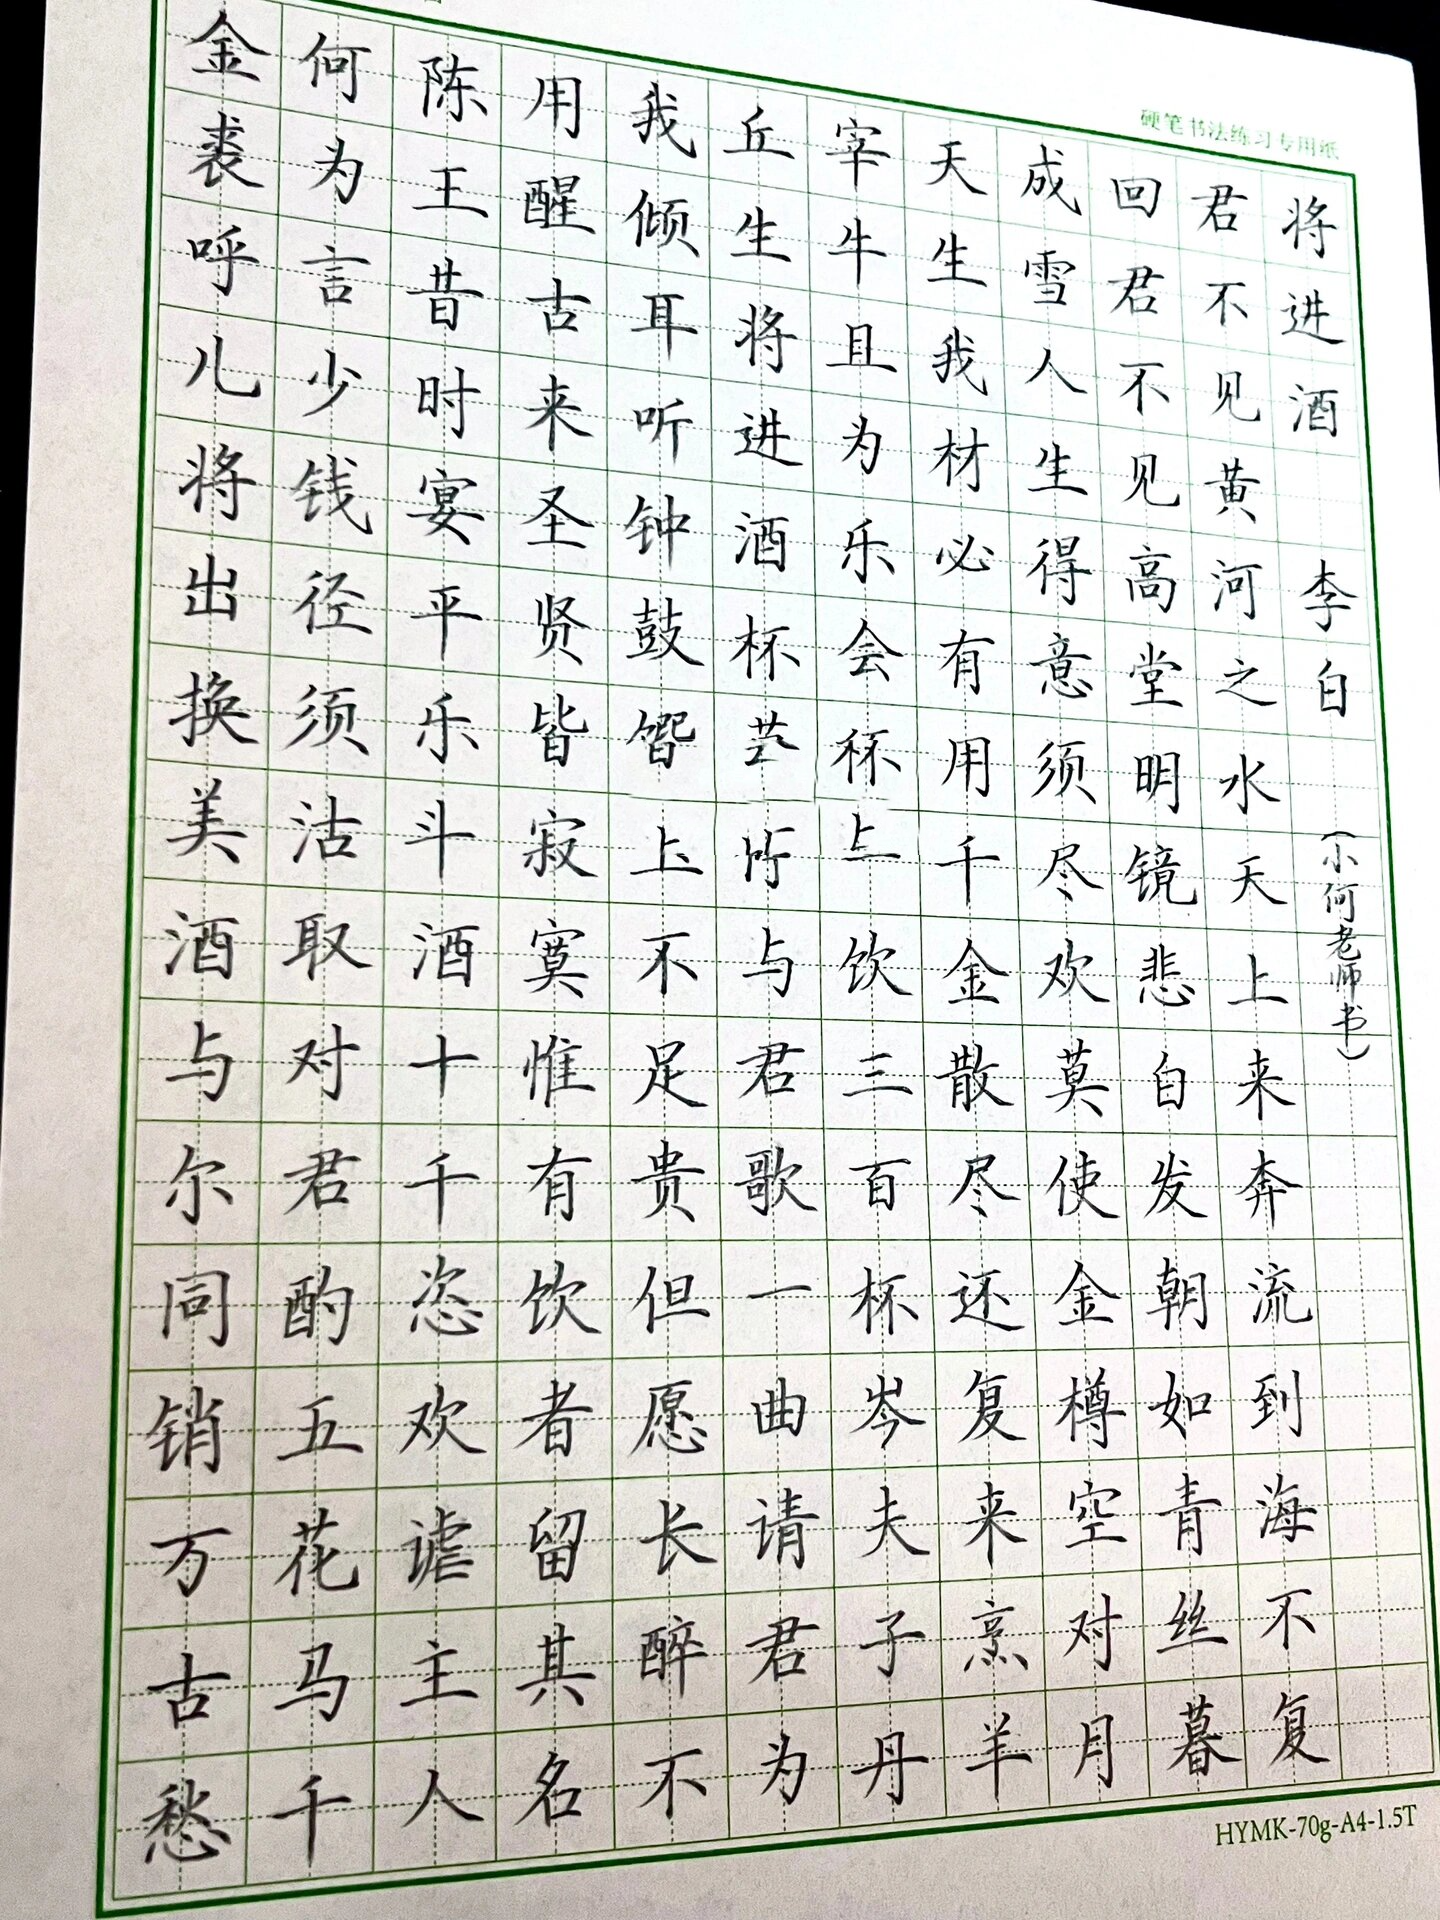 硬笔书法练习专用纸
将进酒 李白 (小何老师书)
君不见黄河之水天上来奔流到海不复
回君不见高堂明镜悲白发朝如青丝暮
成雪人生得意须尽欢莫使金樽空对月
天生我材必有用千金散尽还复来烹羊
宰牛且为乐会饮三百杯岑夫子丹
丘生将进酒杯与君歌一曲请君为
我倾耳听钟鼓不足贵但愿长醉不
用醒古来圣贤皆寂寞惟有饮者留其名
陈王昔时宴平乐斗酒十千恣欢谑主人
何为言少钱径须沽取对君酌五花马千
金裘呼儿将出换美酒与尔同销万古愁
HYMK-70g-A4-1.5T